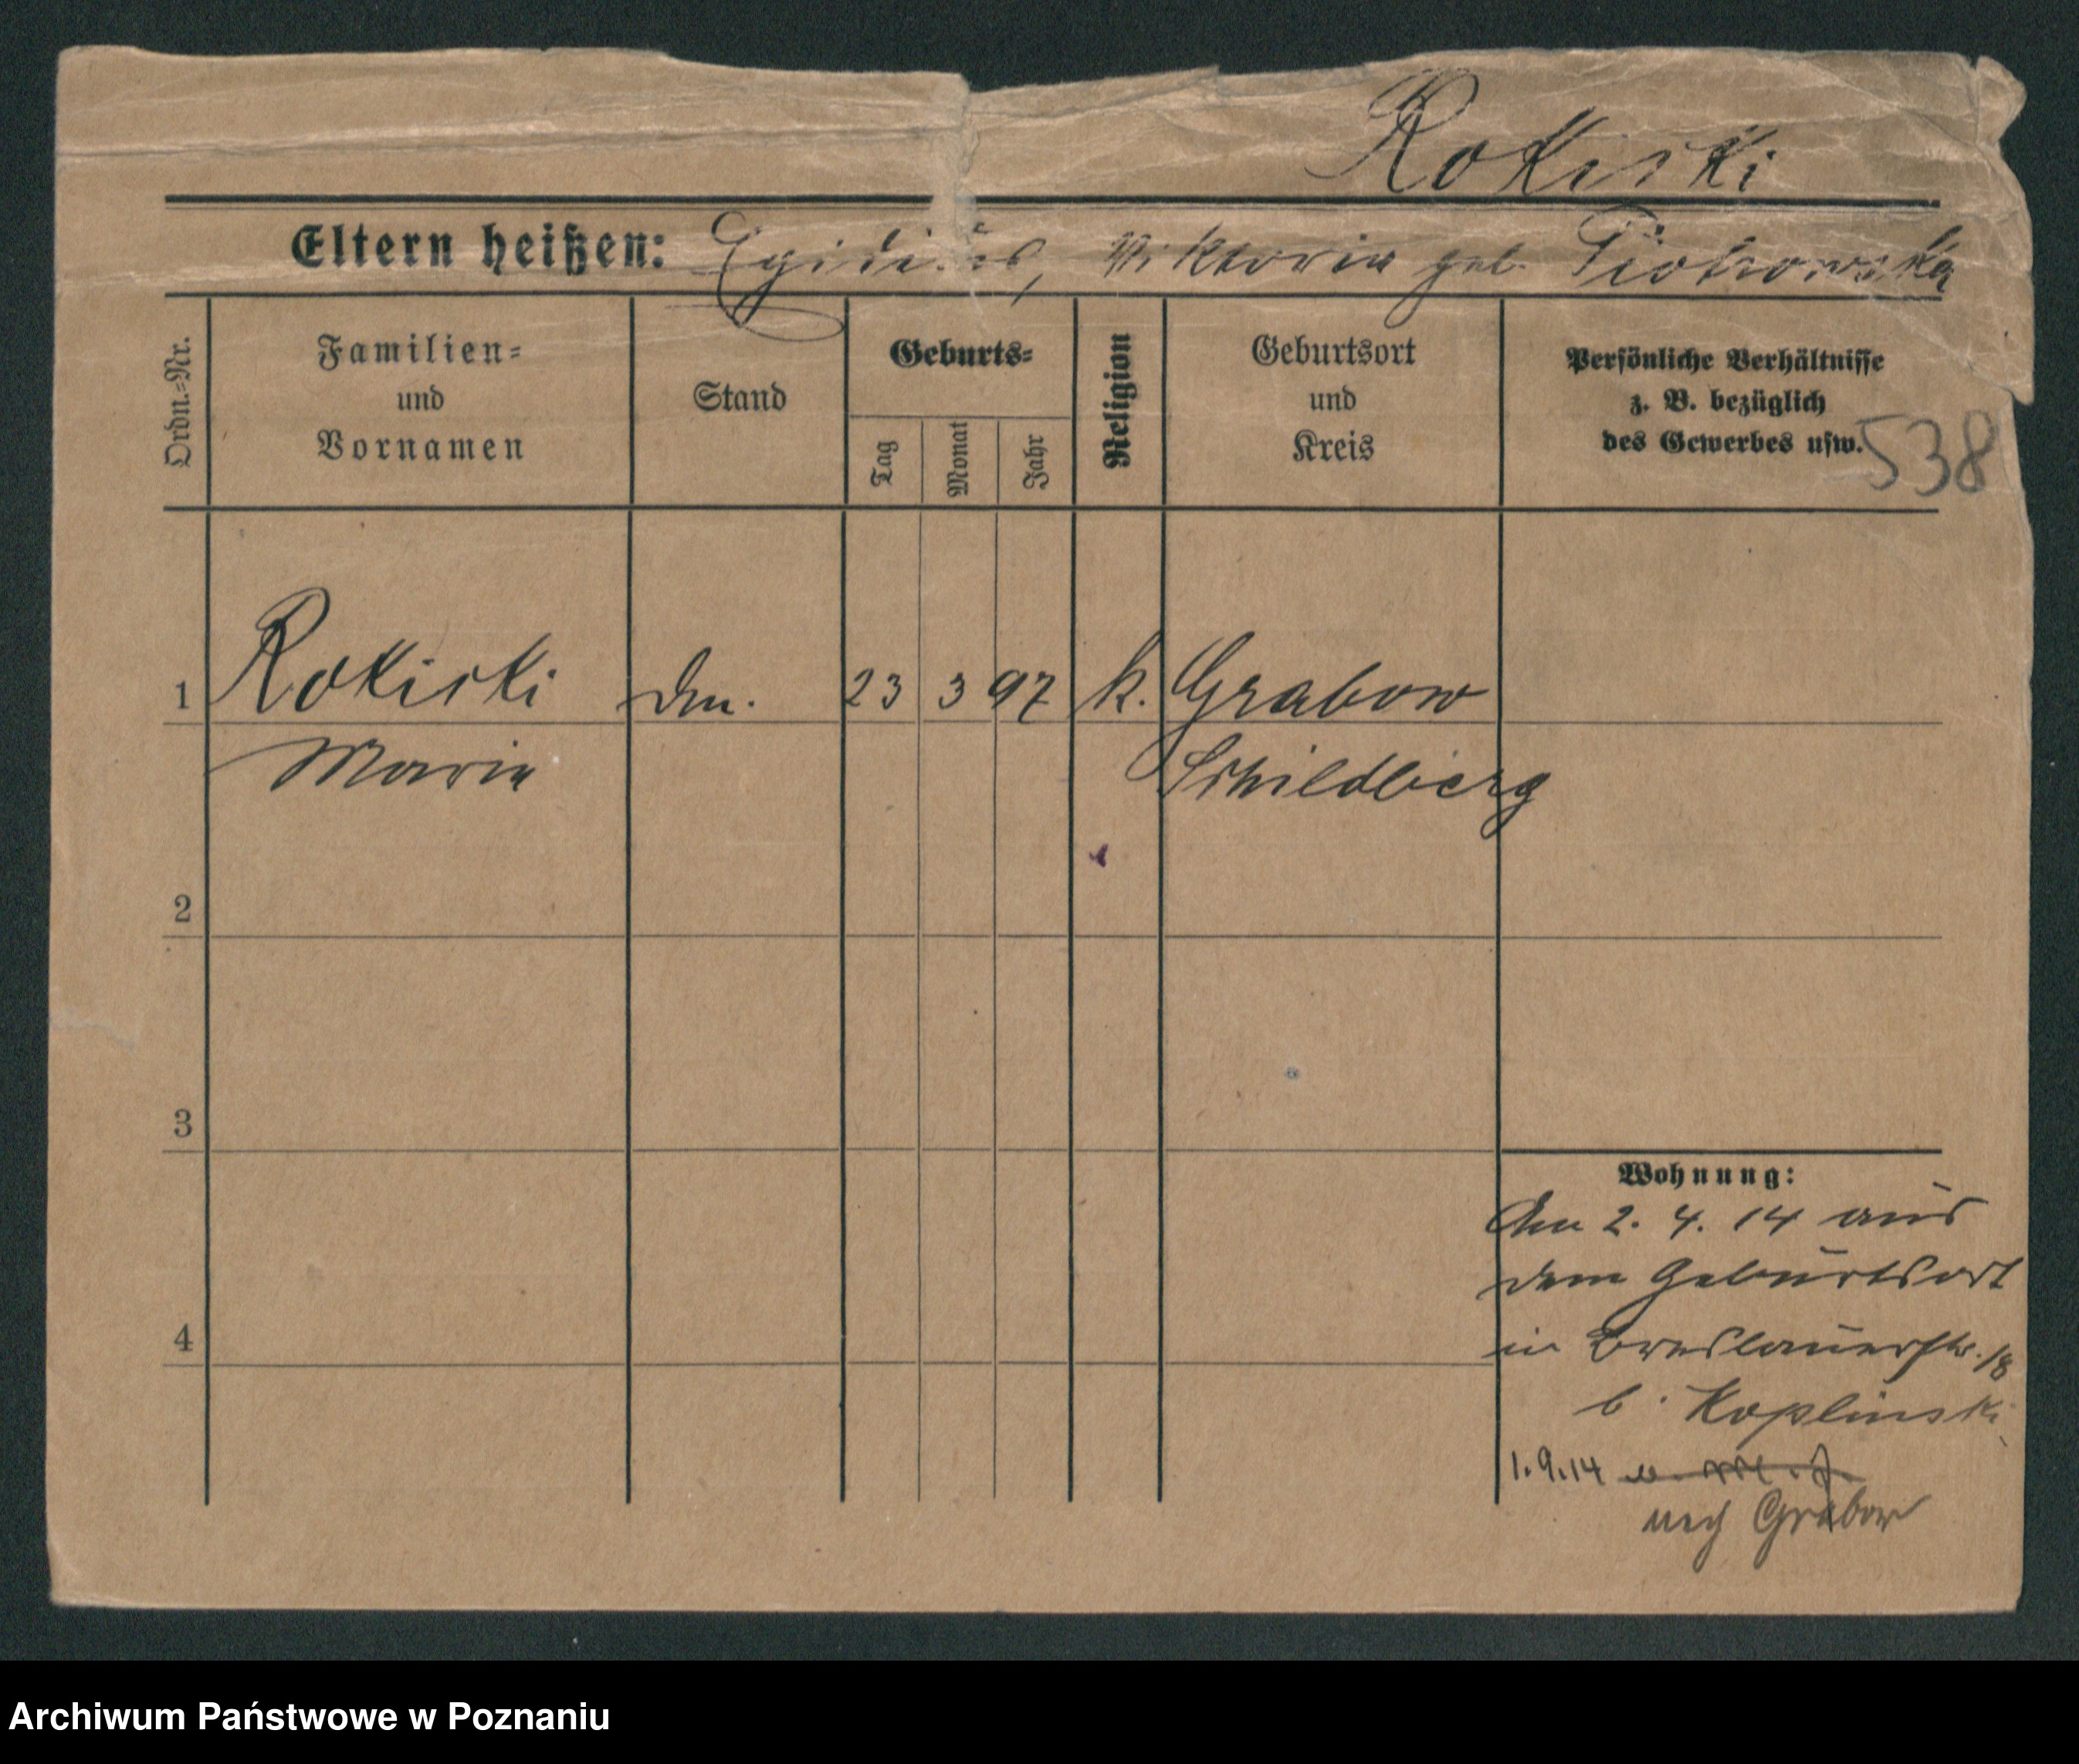 Rokiski
Eltern heißen: Egidius, Viktoria geb. Piotrowska
Ordn.-Nr.
Familien-
und
Vornamen
Stand
Geburts-
Tag
Monat
Jahr
Religion
Geburtsort
und
Kreis
Persönliche Verhältnisse
z. B. bezüglich
des Gewerbes usw.
538
1 Rokiski 23 3 97 k. Grabow
Maria Schildberg
2
3
4
Wohnung:
Am 2. 4. 14 aus
dem Geburtsort
in Breslauerstr. 18
b. Koplinski
1.9.14
nach Grabow
Archiwum Państwowe w Poznaniu